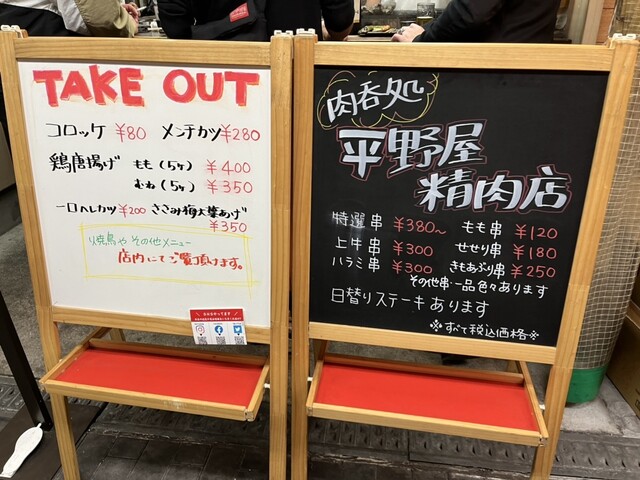 TAKE OUT
コロッケ ¥80 メンチカツ ¥280
鶏唐揚げ もも(5ヶ) ¥400
むね(5ヶ) ¥350
一口ヘレカツ ¥200 ささみ梅大葉あげ
¥350
焼鳥や その他メニュー
店内にてご覧頂けます。
肉呑処
平野屋
精肉店
特選串 ¥380~ もも串 ¥120
上牛串 ¥300 せせり串 ¥180
ハラミ串 ¥300 きもあぶり串 ¥250
その他串・一品色々あります
日替りステーキあります
※すべて税込価格※